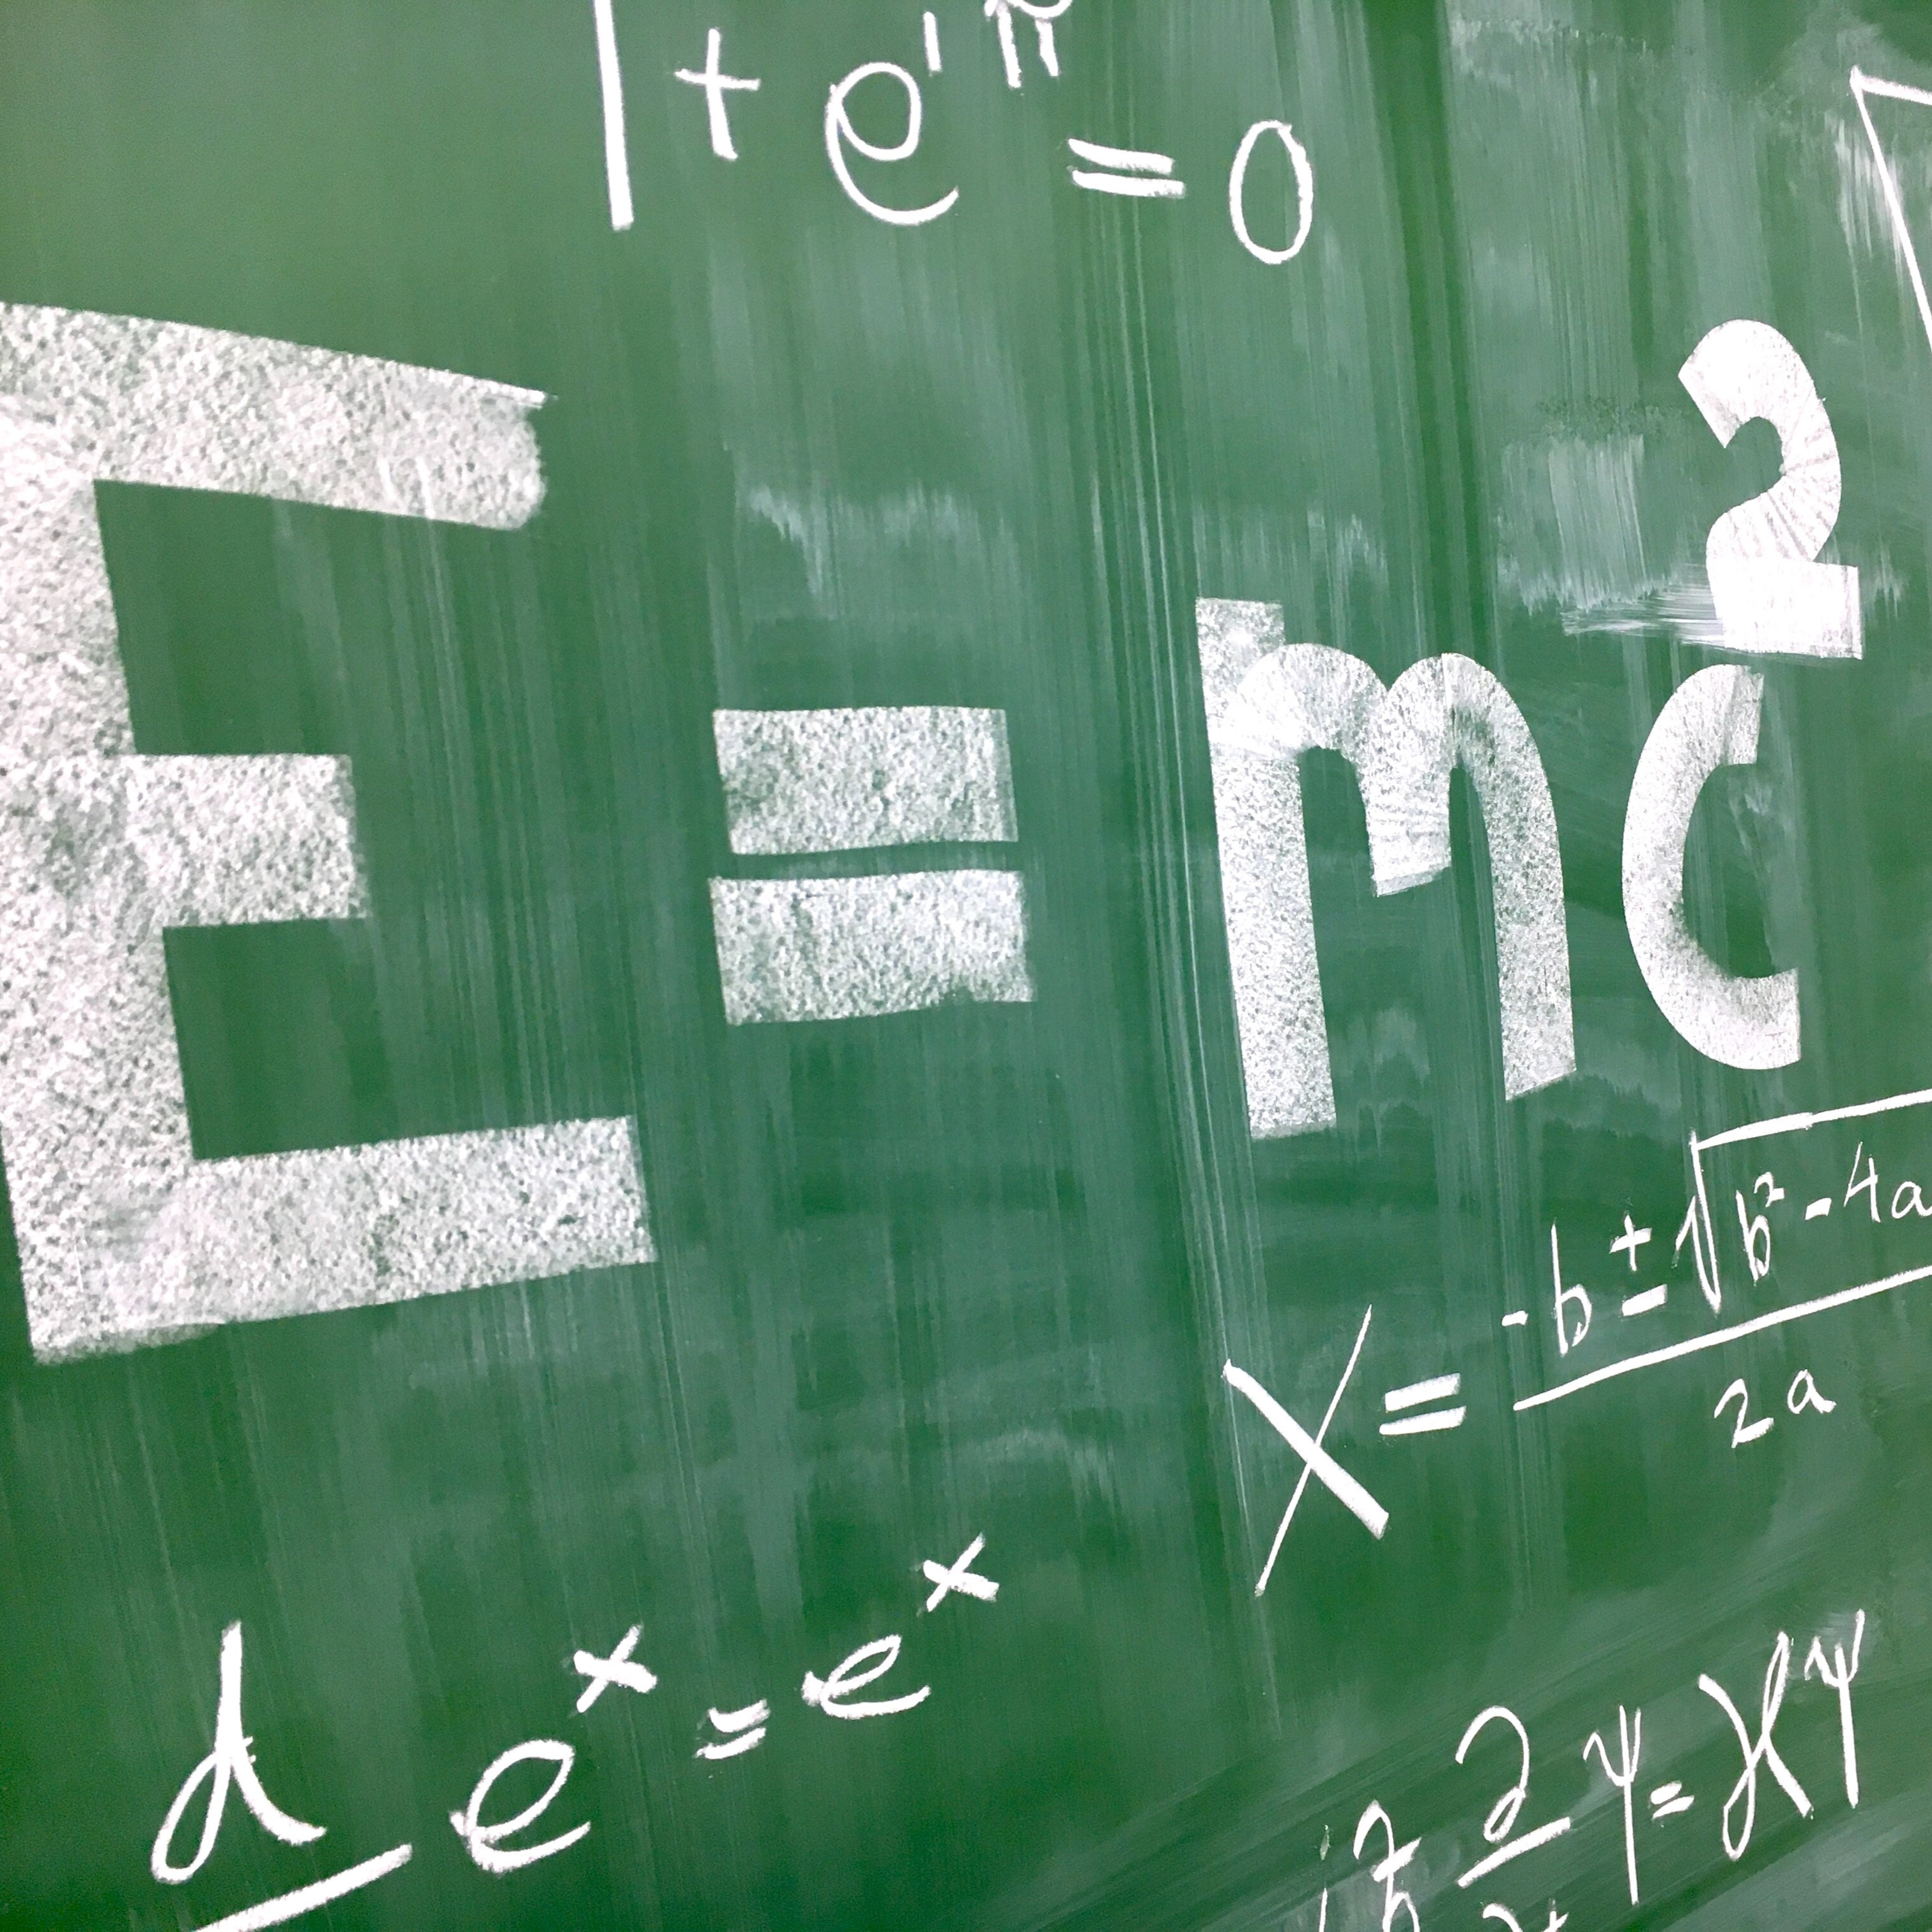 1 + e^{iπ} = 0
E = mc²
x = (-b ± √(b² - 4a)/(2a)
d e^x = e^x
iħ ∂ ψ = ℋψ